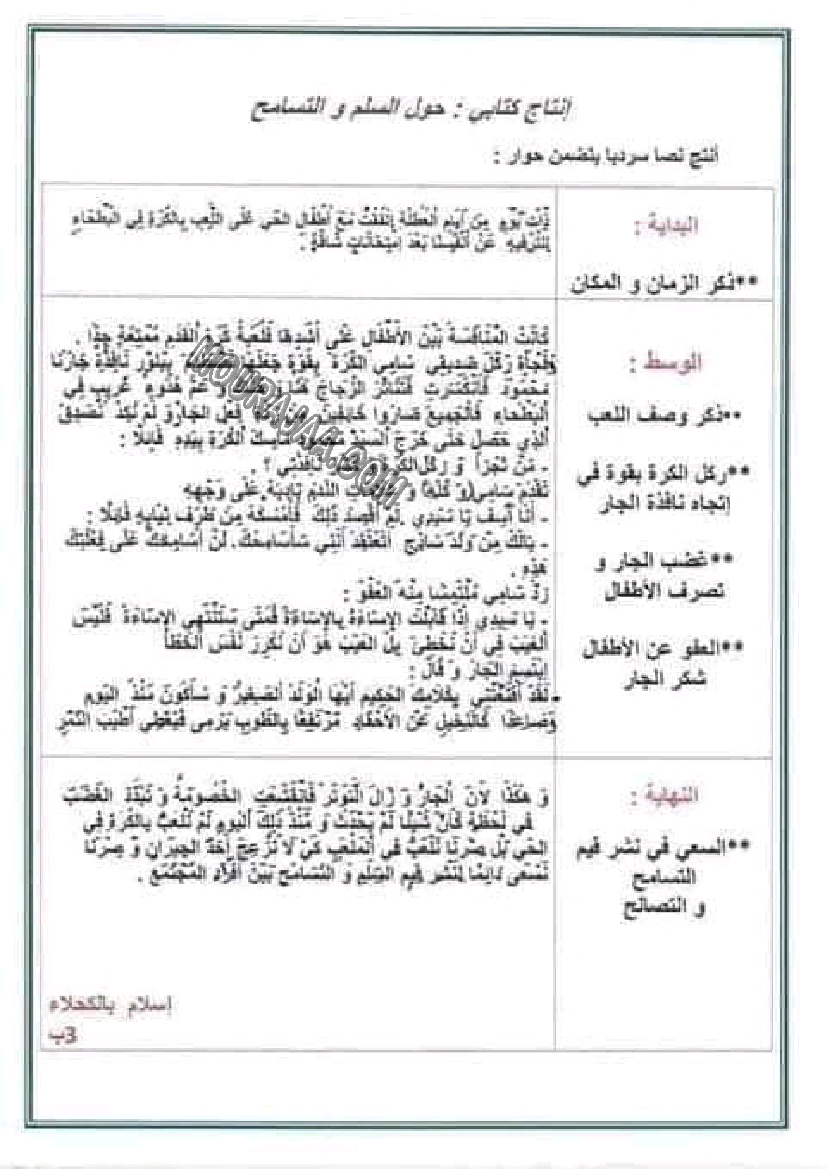 إنتاج كتابي : حول السلم و التسامح
أنتج نصا سرديا يتضمن حوار :
البداية :
**ذكر الزمان و المكان
ذَاتَ يَوْمٍ مِنْ أَيَّامِ الْعُطْلَةِ إِتَّفَقْتُ مَعَ أَطْفَالِ الحَي عَلَى اللَّعِبِ بِالكُرَةِ فِي الْبَطْحَاءِ
لِلتَّرْفِيهِ عَنْ أَنْفُسِنَا بَعْدَ اِمْتِحَانَاتٍ شَاقَّةٍ .
الوسط :
**ذكر وصف اللعب
**ركل الكرة بقوة في
إتجاه نافذة الجار
**غضب الجار و
تصرف الأطفال
**العفو عن الأطفال
شكر الجار
كَانَتْ الْمُنَافَسَةُ بَيْنَ الأَطْفَالِ عَلَى أَشُدِّهَا فَلُعْبَةُ كُرَةِ القَدَمِ مُمْتِعَةٌ جِدًّا .
وَفَجْأَةً رَكَلَ صَدِيقِي سَامِي الكُرَةَ بِقُوَّةٍ جَعَلَتْهَا بِبَلَّوْرِ نَافِذَةِ جَارِنَا
مَحْمُود فَانْكَسَرَتِ فَتَنَاثَرَ الزُّجَاجُ هُنَا وَ هُنَاكَ وَ عَمَّ هُدُوءٌ غَرِيبٌ فِي
الْبَطْحَاءِ فَالْجَمِيعُ صَارُوا خَائِفِينَ مِنْ فِعْلِ الجَارِ وَ لَمْ نَكَدْ نُصَدِّقُ
الَّذِي حَصَلَ حَتَّى خَرَجَ السَّيِّدُ مَحْمُود مَاسِكَ الْكُرَةِ بِيَدِهِ قَائِلًا :
- مَنْ تَجَرَّأَ وَ رَكَلَ الكُرَةَ وَ كَسَّرَ نَافِذَتِي ؟ .
تَقَدَّمَ سَامِي وَ النَّدَمِ بَادِيَةٌ عَلَى وَجْهِهِ
- أَنَا آسِفٌ يَا سَيِّدِي . لَمْ أَقْصِدْ ذَلِكَ فَأَمْسَكَهُ مِنْ طَرَفِ ثِيَابِهِ قَائِلًا :
- يَالَكَ مِنْ وَلَدٍ سَاذِجٍ أَتَعْتَقِدُ أَنَّنِي سَأُسَامِحُكَ . لَنْ أُسَامِحَكَ عَلَى فِعْلَتِكَ
هَذِهِ
رَدَّ سَامِي مُلْتَمِسًا مِنْهُ العَفْوَ :
- يَا سَيِّدِي إِذَا قَابَلْتَ الإِسَاءَةَ بِالإِسَاءَةِ فَمَتَى سَتَنْتَهِي الإِسَاءَةُ فَلَيْسَ
العَيْبُ فِي أَنْ نُخْطِئَ بَلْ العَيْبُ هُوَ أَنْ نُكَرِّرَ نَفْسَ الخَطَأ
اِبْتَسِمَ الجَارُ وَ قَالَ :
- لَقَدْ أَقْنَعْتَنِي بِكَلَامِكَ الحَكِيمِ أَيُّهَا الْوَلَدُ الصَّغِيرُ وَ سَأَكُونُ مُنْذُ اليَوْمِ
وَصَاعِدًا كَالنَّخِيلِ عَنْ الأَحْقَادِ مُرْتَفِعًا بِالطُّوبِ يُرْمَى فَيُعْطِي أَطْيَبَ الثَّمَرِ
النهاية :
**السعي في نشر قيم
التسامح
و التصالح
وَ هَكَذَا لَانَ الْجَارُ وَ زَالَ التَّوَتُّرُ فَانْقَشَعَتِ الْخُصُومَةُ وَ تَبَدَّدَ الغَضَبُ
فِي لَحْظَةٍ كَأَنَّ شَيْئًا لَمْ يَحْدُثْ وَ مُنْذُ ذَلِكَ اليَوْمِ لَمْ نَلْعَبْ بِالكُرَةِ فِي
الحَي بَلْ صِرْنَا نَلْعَبُ فِي المَلْعَبِ كَيْ لَا نُزْعِجَ أَحَدَ الجِيرَانِ وَ صِرْنَا
نَسْعَى دَائِمًا لِنَشْرِ قِيَمِ السِّلْمِ وَ التَّسَامُحِ بَيْنَ أَفْرَادِ المُجْتَمَعِ .
إسلام بالكحلاء
3ب
MOURAJAA.COM